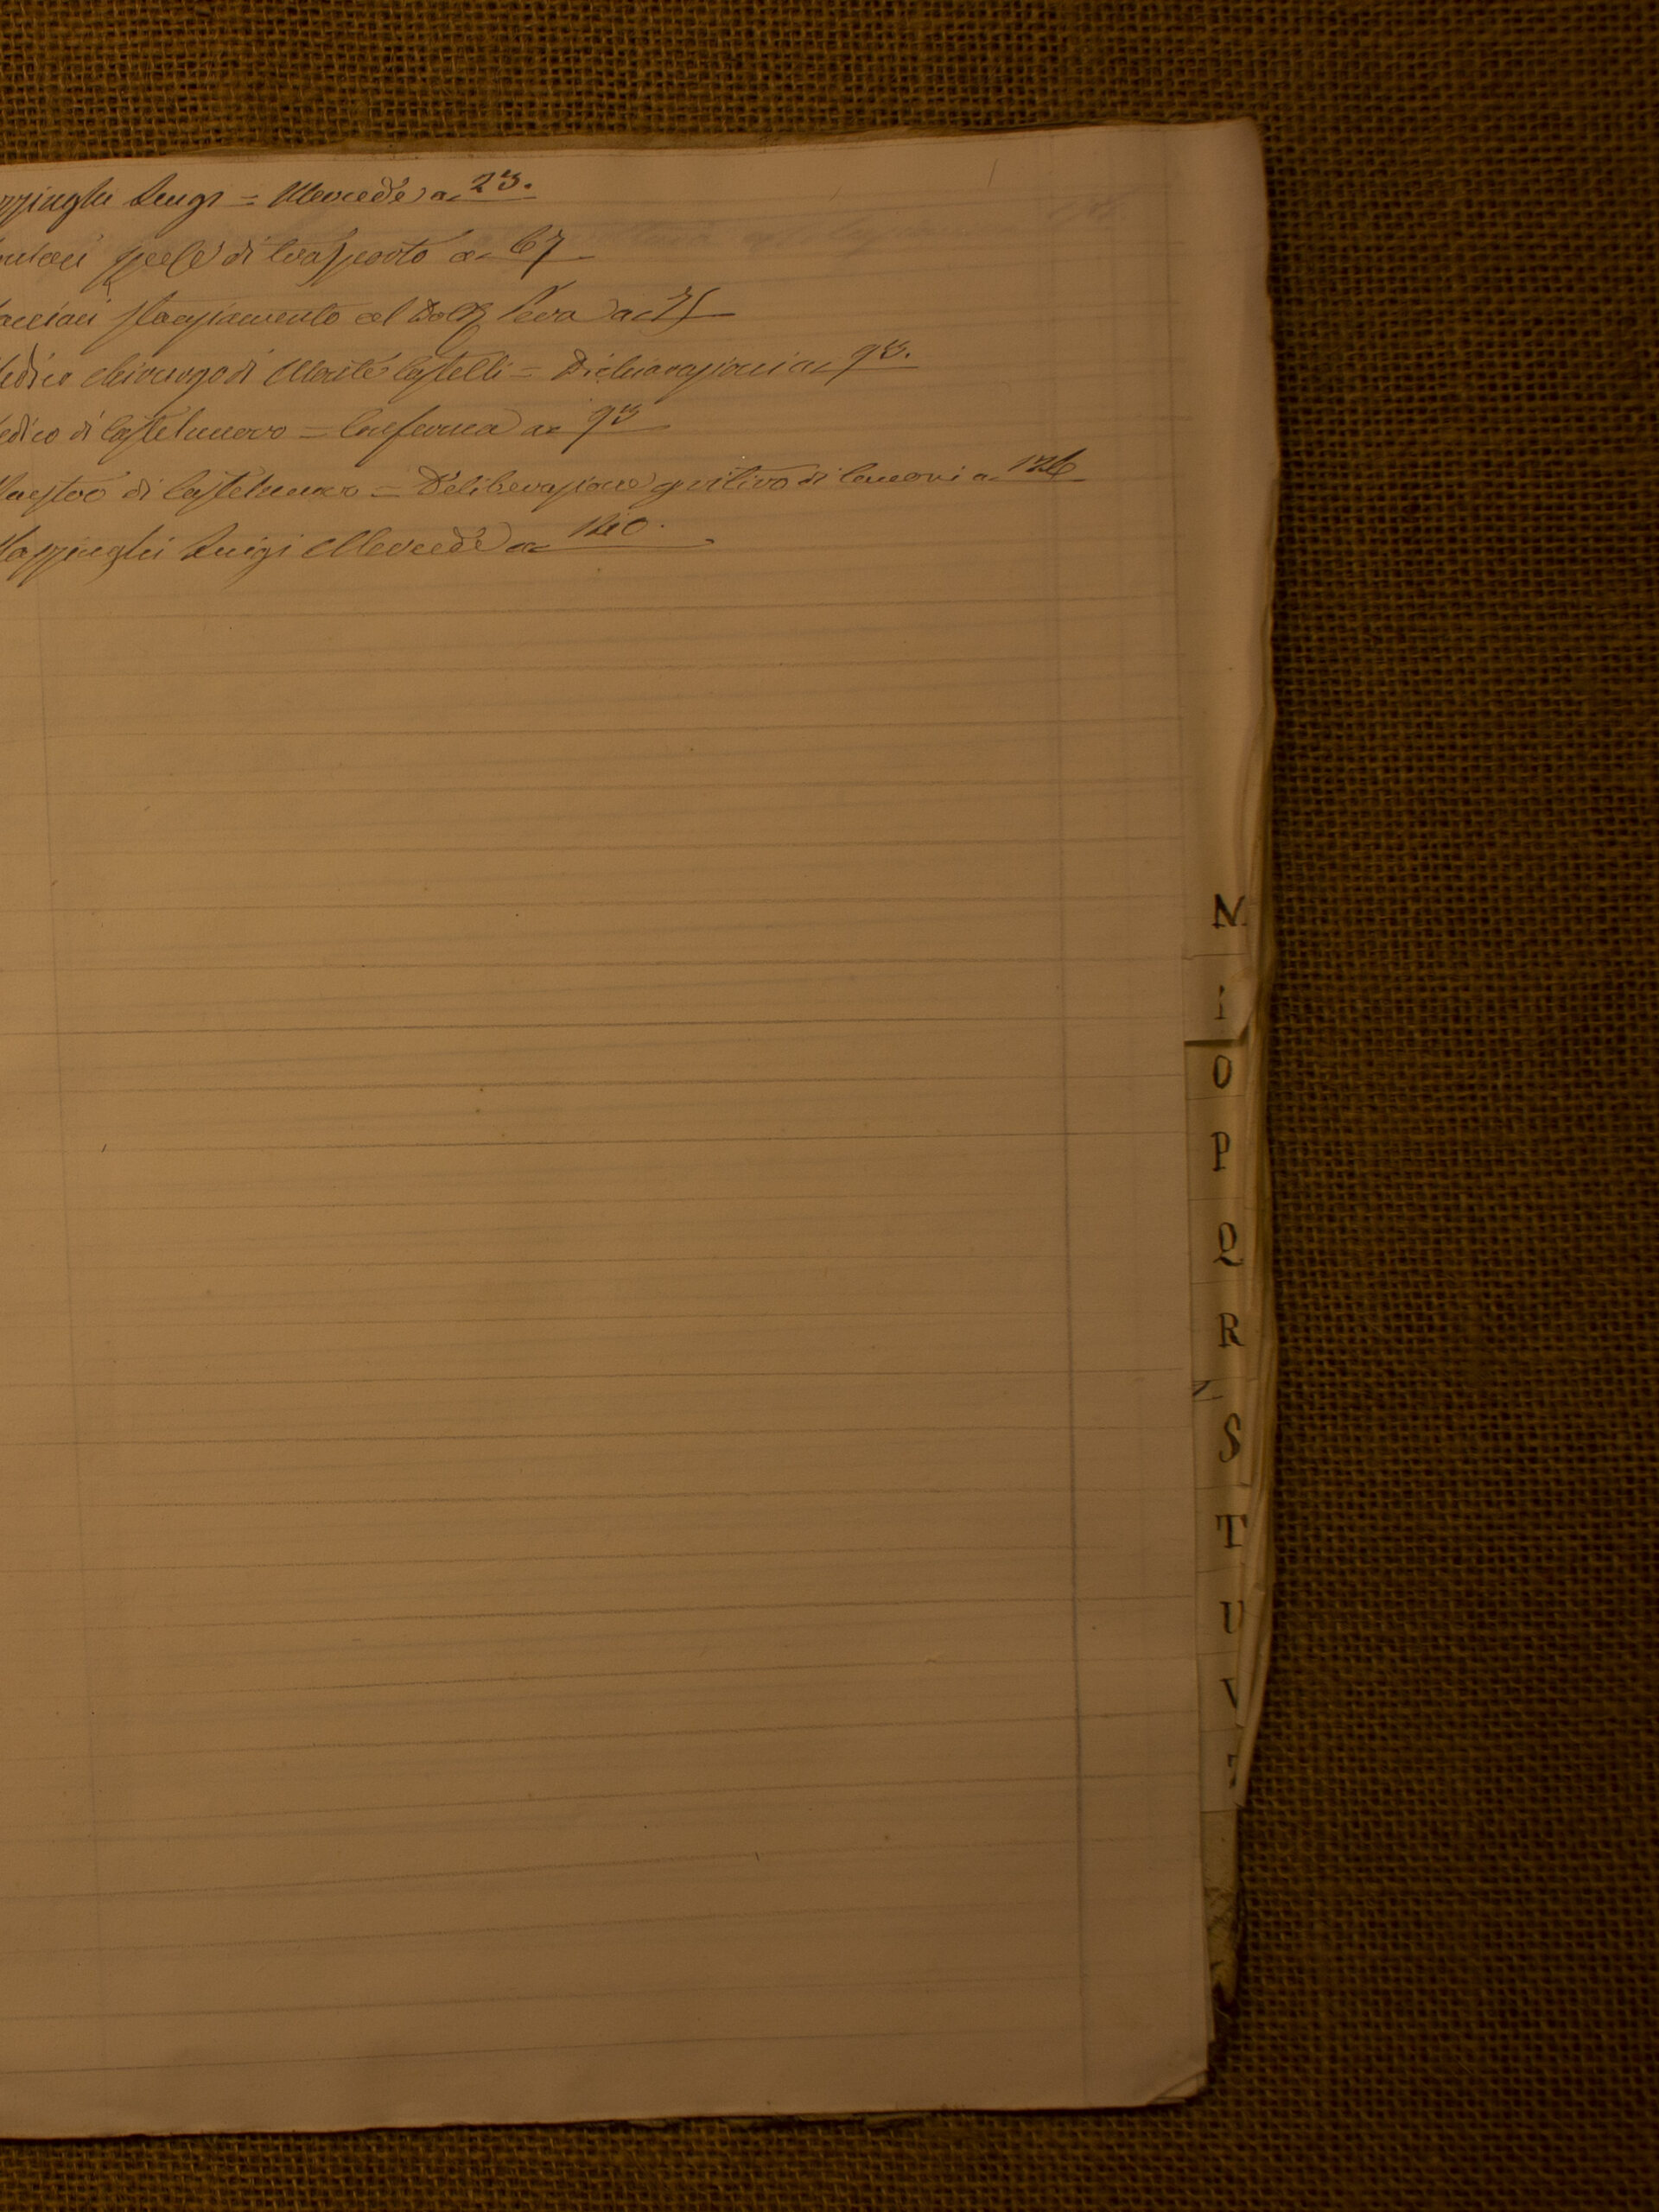 zzinghi Luigi = Mercede a 23.
spese di trasporto a 67
stanziamento al Dott Peva a 75
edico chirurgo di Monte Castelli = Dichiarazioni a 93.
edico di Castelnuovo = Conferma a 93
Maestro di Castelnuovo = Deliberazione a 126
Mazzinghi Luigi Mercede a 140.
M
O
P
Q
R
S
T
U
V